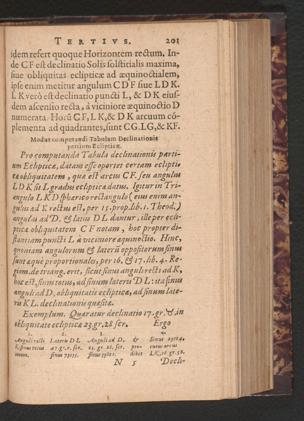 TERTIVS. 201
idem refert quoque Horizontem rectum. In-
de CF est declinatio Solis solstitialis maxima,
siue obliquitas eclipticæ ad æquinoctialem,
ipse enim metitur angulum CDF siue LDK.
LK verò est declinatio puncti L, & DK eius-
dem ascensio recta, à viciniore æquinoctio D
numerata. Horũ CF, LK, & DK arcuum cõ-
plementa ad quadrantes, sunt CG. LG, & KF.
Modus computandi Tabulam Declinationis
partium Eclipticæ.
Pro computanda Tabula declinationis parti-
um Eclipticæ, datam esse oportet certam eclipti-
cæ obliquitatem, qua est arcus CF. seu angulus
LDK sit L gradus eclipticæ datus. Igitur in Tri-
angulo LKD sphærico rectangulo (eius enim an-
gulus ad K rectus est, per 15. prop. lib. 1. Theod.)
angulus ad D. & latus DL dantur, ille per ecli-
pticæ obliquitatem CF notam, hoc propter di-
stantiam puncti L à viciniore æquinoctio. Hinc,
quoniam angulorum & laterũ oppositorum sinus
sunt æquè proportionales, per 16. & 17. lib. 4. Re-
giom. de triang. erit, sicut sinus anguli recti ad K,
hoc est, sinus totus, ad sinum lateris DL: ita sinus
anguli ad D. obliquitatis eclipticæ, ad sinum late-
ris KL. declinationis quæsitæ.
Exemplum. Quæratur declinatio 17. gr. ♉, in
obliquitate eclipticæ 23. gr. 28. scr. Ergo
1. 2. 3. 4.
Anguli recti Lateris DL Anguli ad D. & Sinus
K, sinus totus 47. gr. 0. scr. 23. gr. 28. scr. pro- cuius arcus
sinus 73135. dibit
N 5 Decli-